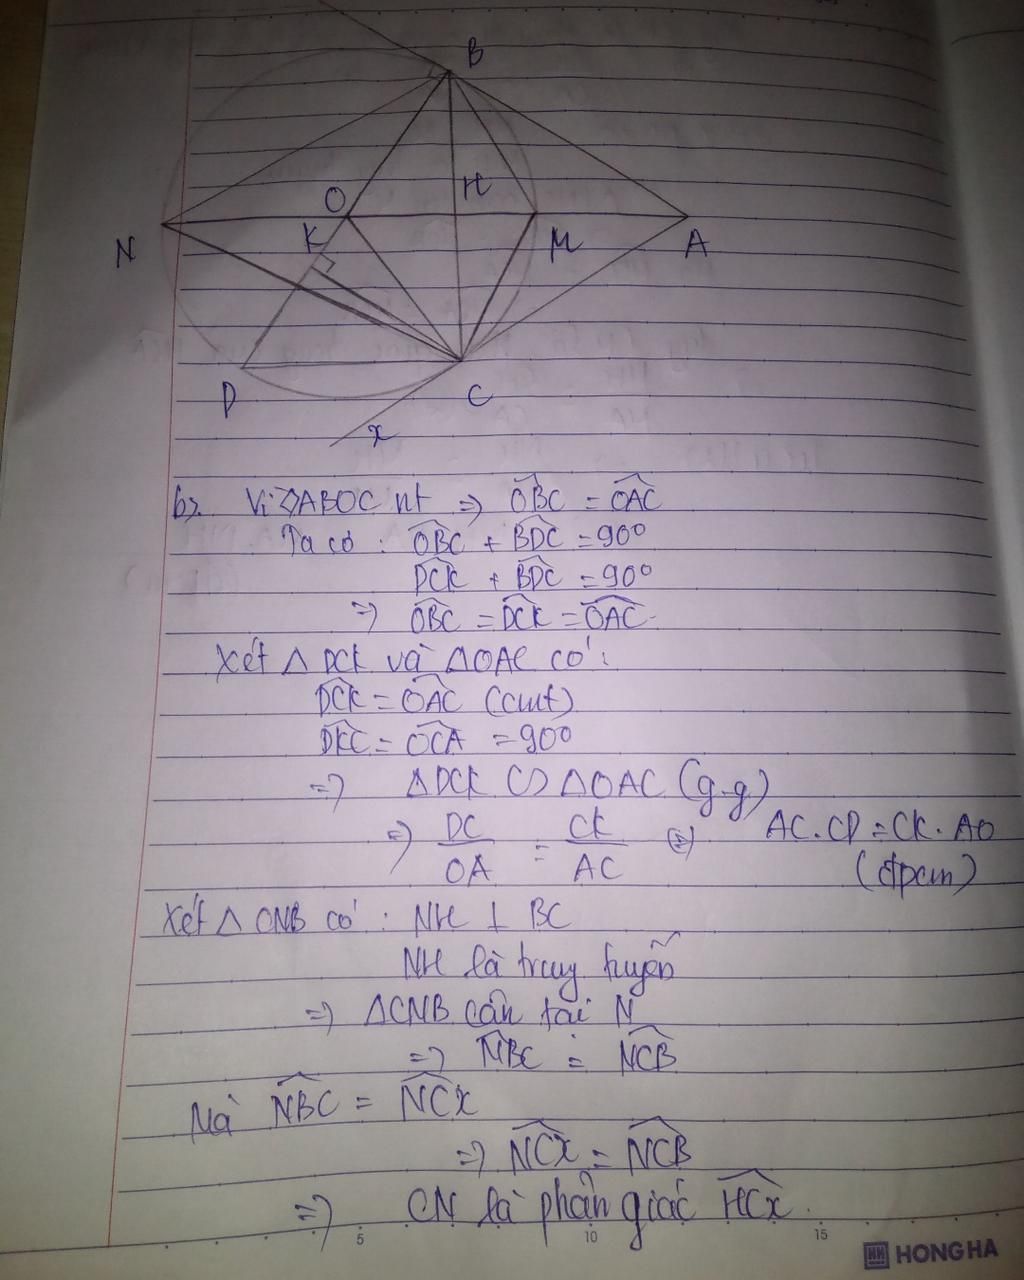 B
O H
K
N M A
D C
x
b). Vì ◇ABOC nt => OBC = OAC
Ta có : OBC + BDC = 90°
DCK + BDC = 90°
=> OBC = DCK = OAC.
Xét △ DCK và △OAC có:
DCK = OAC (cmt)
DKC = OCA = 90°
=> △DCK ∽ △OAC (g-g)
=> DC/OA = CK/AC <=> AC.CD = CK.AO
(đpcm)
Xét △ CNB có : NH ⊥ BC
NH là trung tuyến
=> △CNB cân tại N
=> NBC = NCB
Mà NBC = NCx
=> NCx = NCB
=> CN là phân giác HCx.
5 10 15
HONG HA